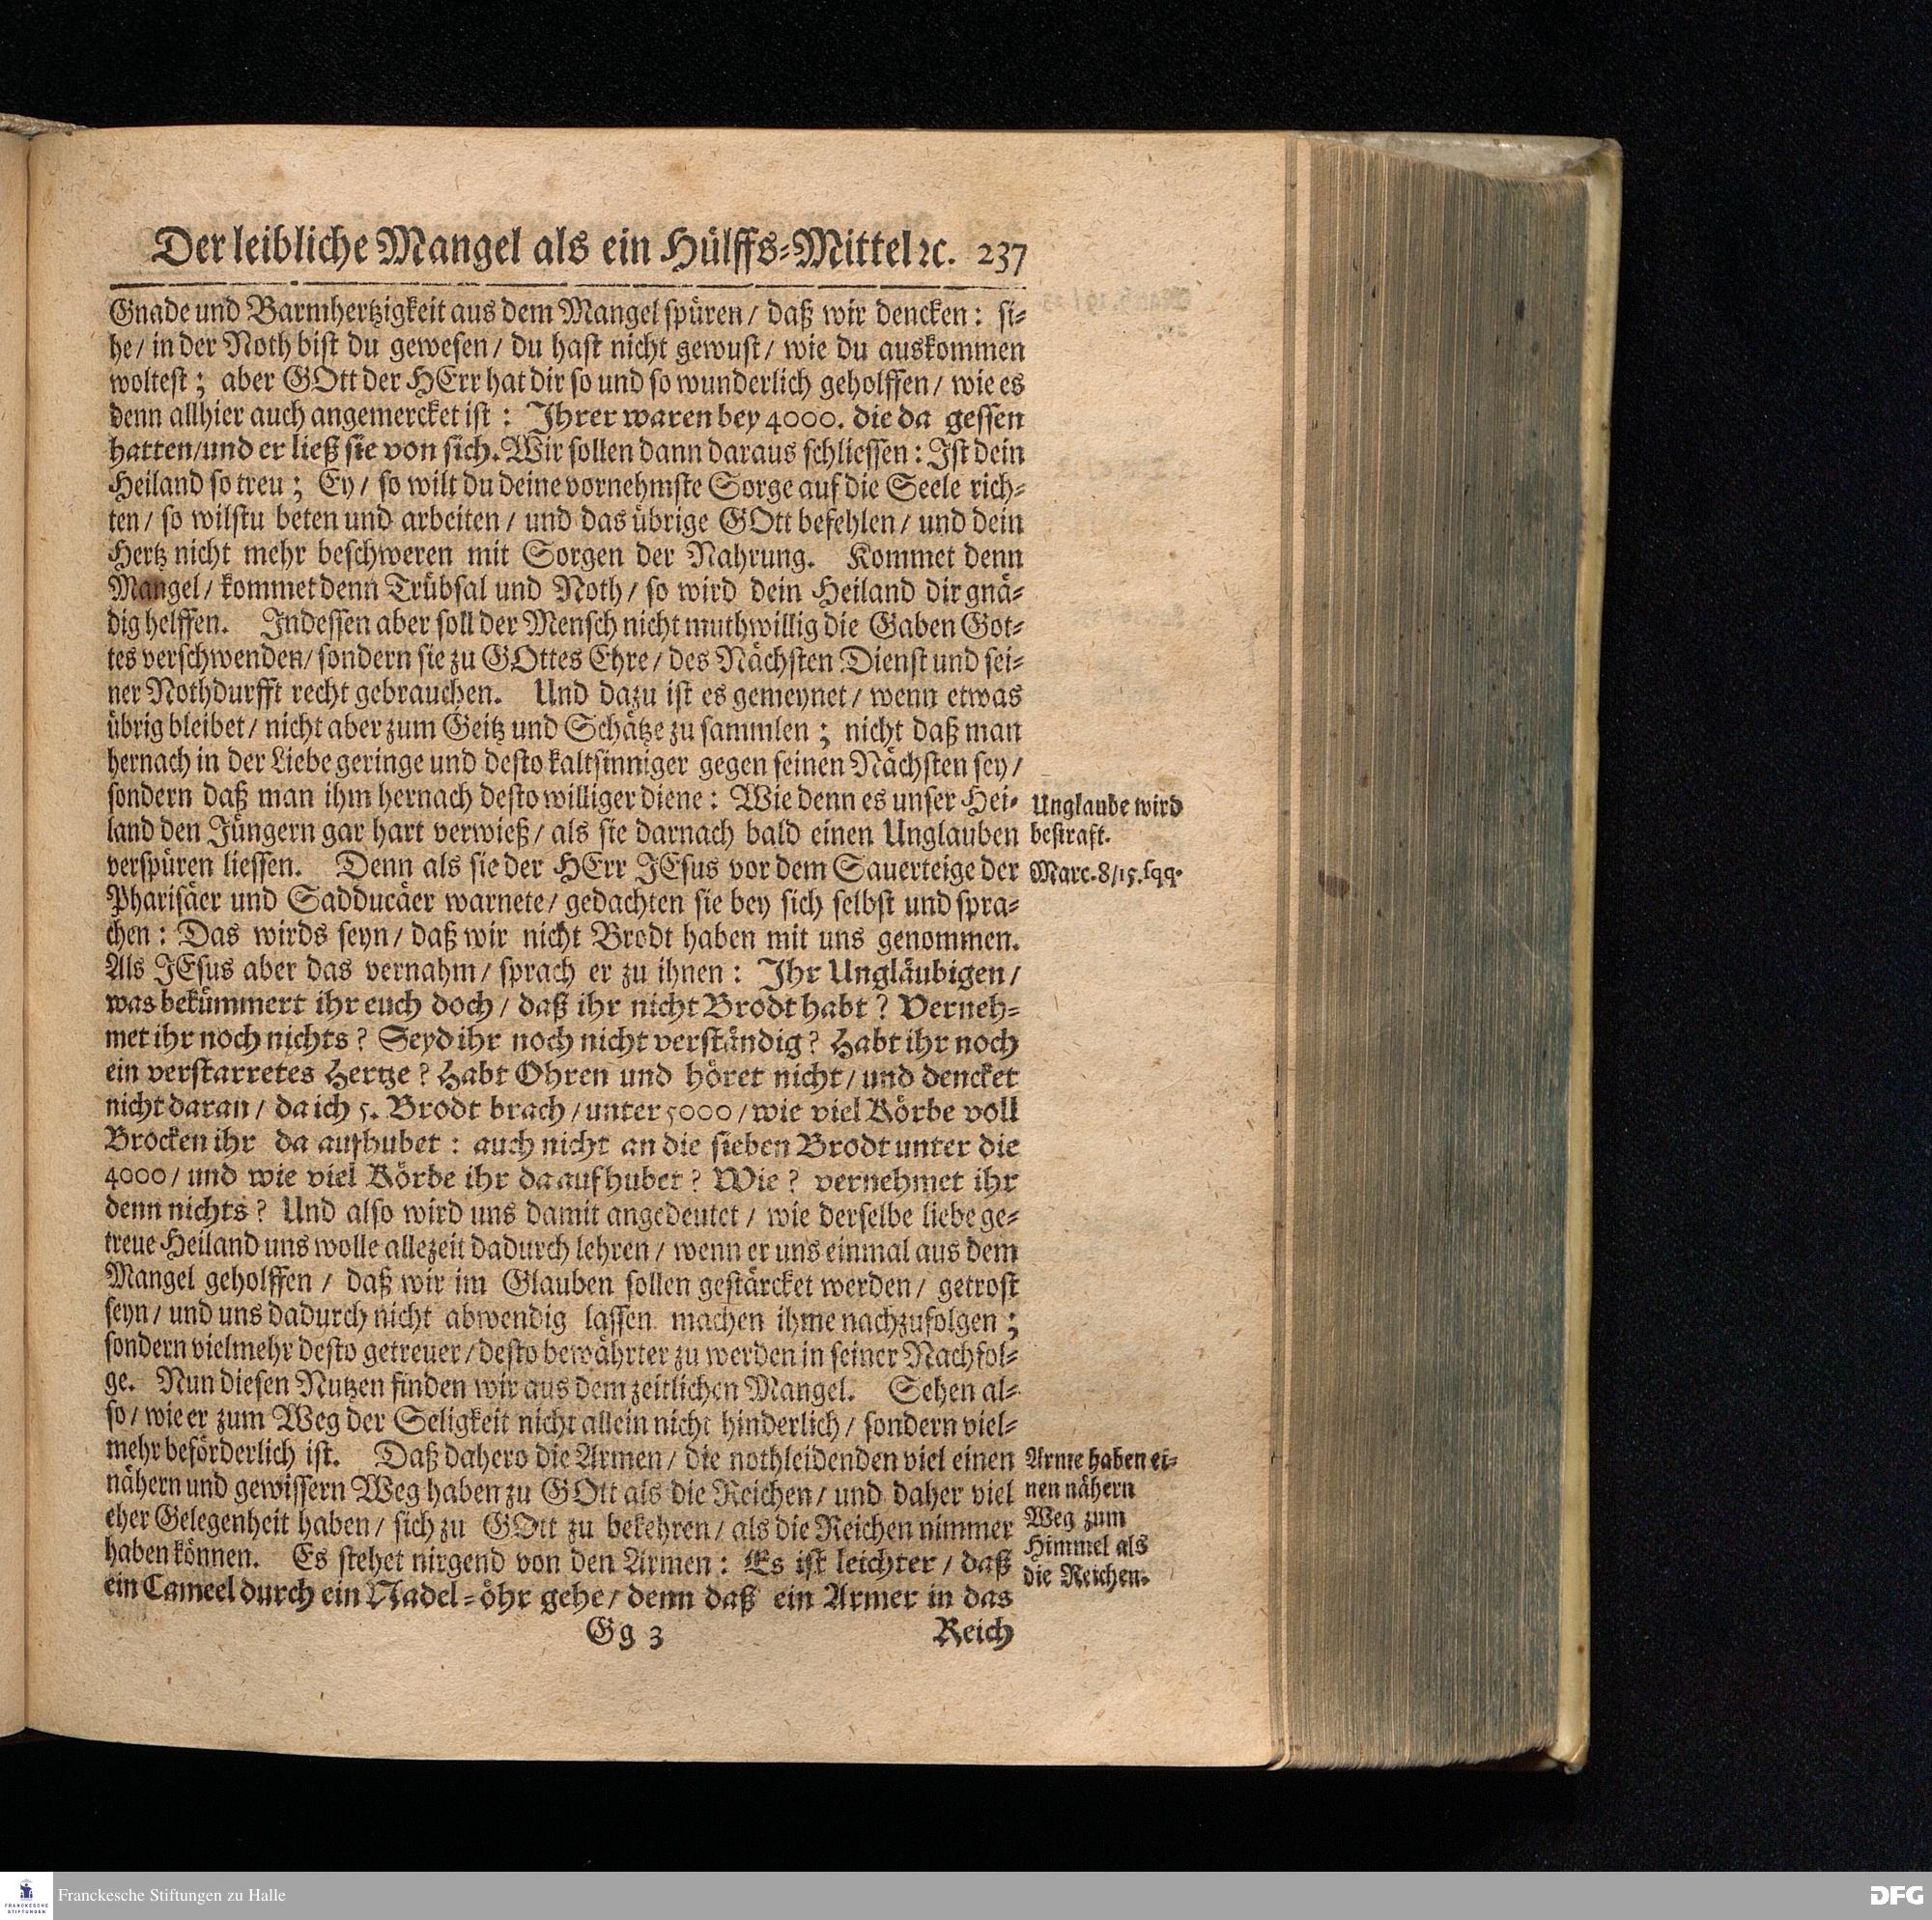 Der leibliche Mangel als ein Hülffs-Mittel ꝛc. 237
Gnade und Barmhertzigkeit aus dem Mangel spüren / daß wir dencken: si-
he / in der Noth bist du gewesen / du hast nicht gewust / wie du auskommen
woltest; aber GOtt der HErr hat dir so und so wunderlich geholffen / wie es
denn allhier auch angemercket ist: Ihrer waren bey 4000. die da gessen
hatten / und er ließ sie von sich. Wir sollen dann daraus schliessen: Ist dein
Heiland so treu; Ey / so wilt du deine vornehmste Sorge auf die Seele rich-
ten / so wilstu beten und arbeiten / und das übrige GOtt befehlen / und dein
Hertz nicht mehr beschweren mit Sorgen der Nahrung. Kommet denn
Mangel / kommet denn Trübsal und Noth / so wird dein Heiland dir gnä-
dig helffen. Indessen aber soll der Mensch nicht muthwillig die Gaben Got-
tes verschwenden / sondern sie zu GOttes Ehre / des Nächsten Dienst und sei-
ner Nothdurfft recht gebrauchen. Und dazu ist es gemeynet / wenn etwas
übrig bleibet / nicht aber zum Geitz und Schätze zu sammlen; nicht daß man
hernach in der Liebe geringe und desto kaltsinniger gegen seinen Nächsten sey /
sondern daß man ihm hernach desto williger diene: Wie denn es unser Hei-
land den Jüngern gar hart verwieß / als sie darnach bald einen Unglauben
verspüren liessen. Denn als sie der HErr JEsus vor dem Sauerteige der
Pharisäer und Sadducäer warnete / gedachten sie bey sich selbst und spra-
chen: Das wirds seyn / daß wir nicht Brodt haben mit uns genommen.
Als JEsus aber das vernahm / sprach er zu ihnen: Ihr Ungläubigen /
was bekümmert ihr euch doch / daß ihr nicht Brodt habt? Verneh-
met ihr noch nichts? Seyd ihr noch nicht verständig? Habt ihr noch
ein verstarretes Hertze? Habt Ohren und höret nicht / und dencket
nicht daran / da ich 5. Brodt brach / unter 5000 / wie viel Körbe voll
Brocken ihr da aufhubet: auch nicht an die sieben Brodt unter die
4000 / und wie viel Körbe ihr da aufhubet? Wie? vernehmet ihr
denn nichts? Und also wird uns damit angedeutet / wie derselbe liebe ge-
treue Heiland uns wolle allezeit dadurch lehren / wenn er uns einmal aus dem
Mangel geholffen / daß wir im Glauben sollen gestärcket werden / getrost
seyn / und uns dadurch nicht abwendig lassen machen ihme nachzufolgen;
sondern vielmehr desto getreuer / desto bewährter zu werden in seiner Nachfol-
ge. Nun diesen Nutzen finden wir aus dem zeitlichen Mangel. Sehen al-
so / wie er zum Weg der Seligkeit nicht allein nicht hinderlich / sondern viel-
mehr beförderlich ist. Daß dahero die Armen / die nothleidenden viel einen
nähern und gewissern Weg haben zu GOtt als die Reichen / und daher viel
eher Gelegenheit haben / sich zu GOtt zu bekehren / als die Reichen nimmer
haben können. Es stehet nirgend von den Armen: Es ist leichter / daß
ein Cameel durch ein Nadel-öhr gehe / denn daß ein Armer in das
Gg 3 Reich
Unglaube wird
bestraft.
Marc. 8/15. sqq.
Arme haben ei-
nen nähern
Weg zum
Himmel als
die Reichen.
FRANCKESCHE
STIFTUNGEN
Franckesche Stiftungen zu Halle
DFG